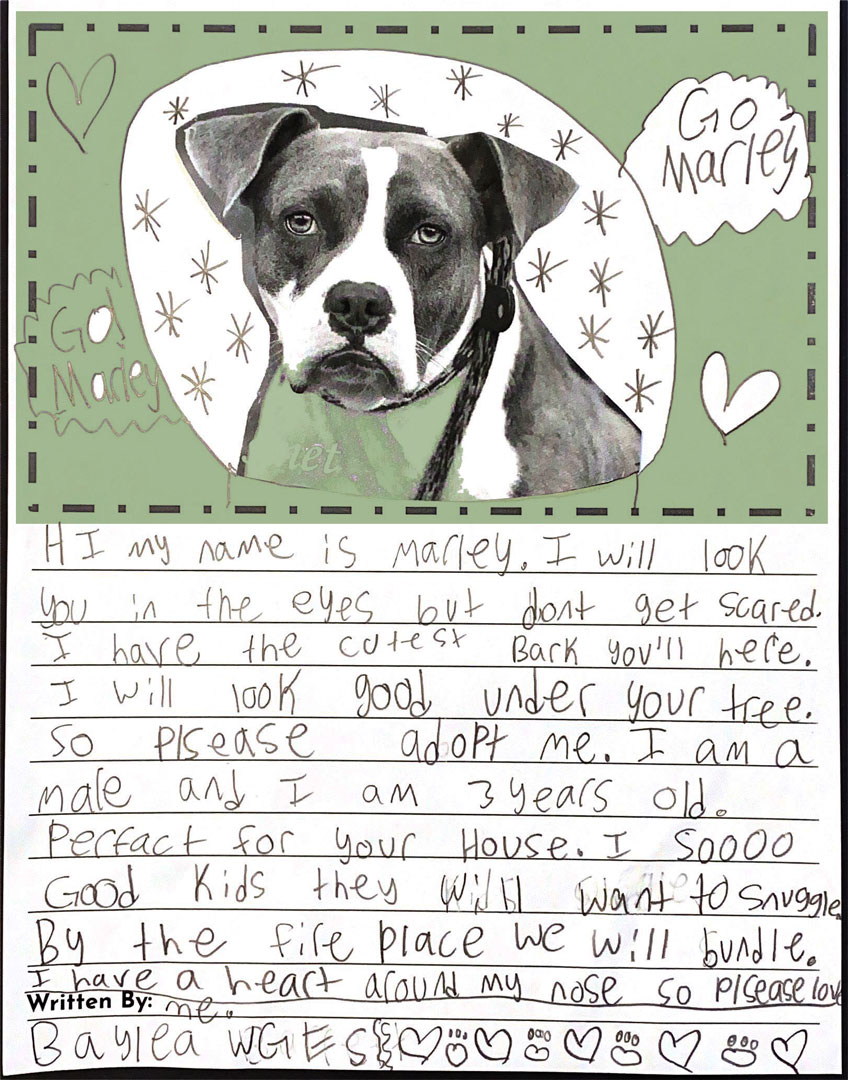 Go
Marley
Go!
Marley
net
HI my name is marley. I will look
you in the eyes but dont get scared.
I have the cutest Bark you'll here.
I will look good under your tree.
So plsease adopt me. I am a
male and I am 3 years old.
Perfact for your House. I soooo
Good kids they will want to snuggle.
By the fire place we will bundle.
I have a heart around my nose so plsease love
Written By: me.
Baylea